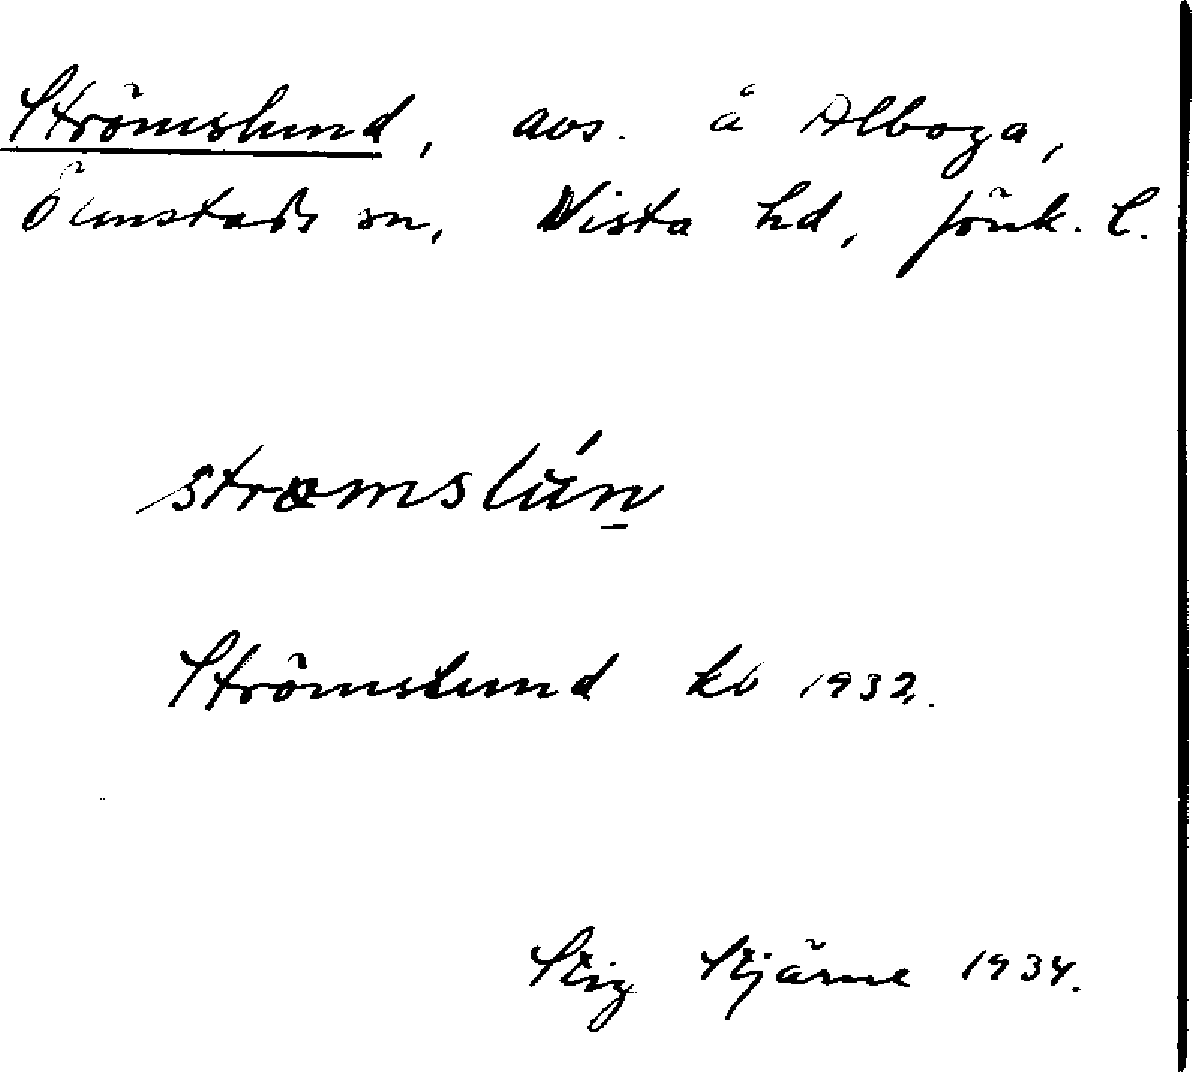 Strömslund, avs. å Alboga,
Ölmstads sn, Vista hd, Jönk. l.
strømslún̠
Strömslund kb 1932.
Stig Stjärne 1934.